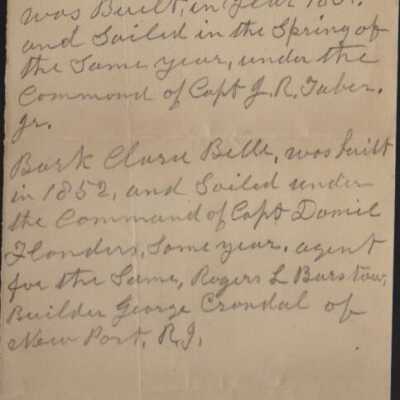 was Built, in Year 185
and Sailed in the Spring of
the Same year, under the
Command of Capt J. R. Taber.
Jr.
Bark Clara Bell, was built
in 1852, and Sailed under
the Command of Capt Daniel
Flanders, Same year. agent
for the Same, Rogers L Barstow,
Builder George Crandal of
New Port, R.I.